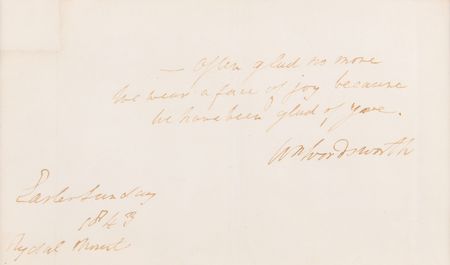 — Often glad no more
We wear a face of joy because
We have been glad of yore.
Wm Wordsworth
Easter Sunday
Rydal Mount